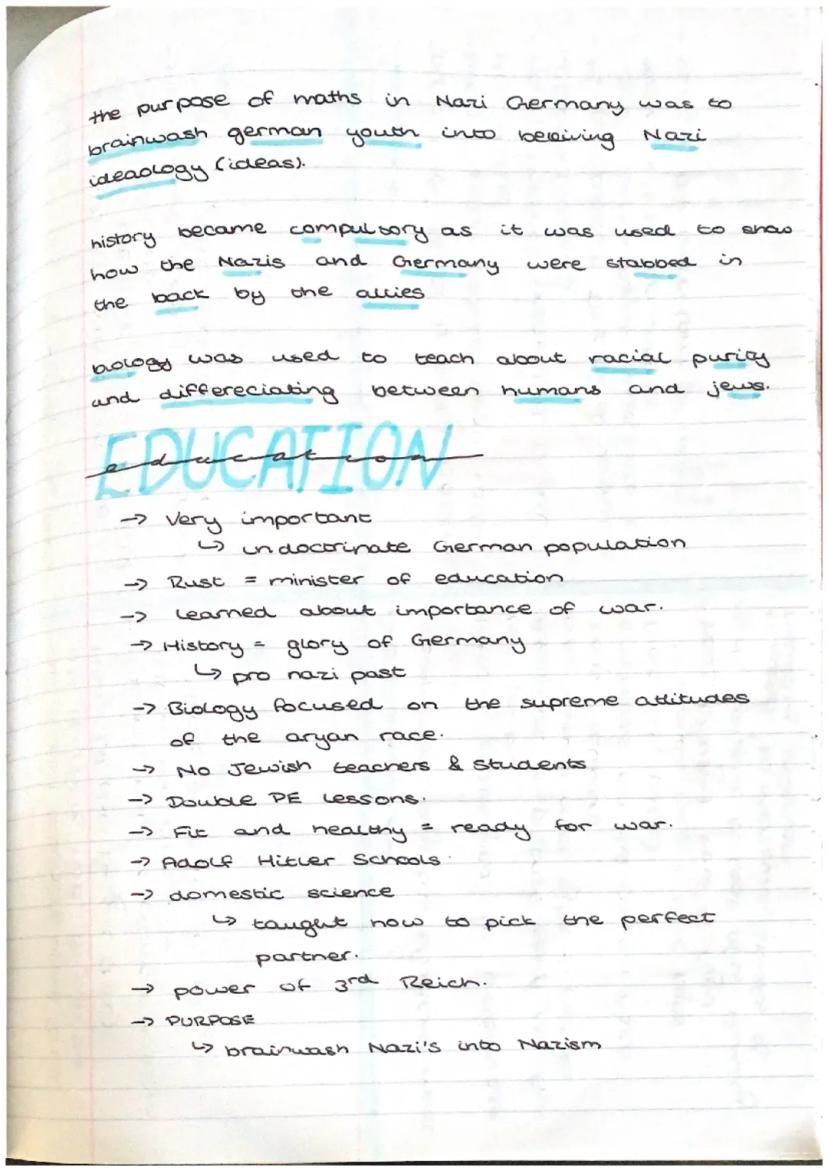 the purpose of maths in Nazi Germany was to
brainwash german youth into beleiving Nazi
ideaology (ideas).
history became compulsory as it was used to show
how the Nazis and Germany were stabbed in
the back by the allies
biology was used to teach about racial purity
and differeciating between humans and jews.
EDUCATION
education
→ Very important
↳ indoctrinate German population
→ Rust = minister of education
→ Learned about importance of war.
→ History = glory of Germany
↳ pro nazi past
→ Biology focused on the supreme attitudes
of the aryan race.
→ No Jewish teachers & students
→ Double PE Lessons.
→ Fit and healthy = ready for war.
→ Adolf Hitler Schools.
→ domestic science
↳ taught how to pick the perfect
partner.
→ power of 3rd Reich.
→ PURPOSE
↳ brainwash Nazi's into Nazism